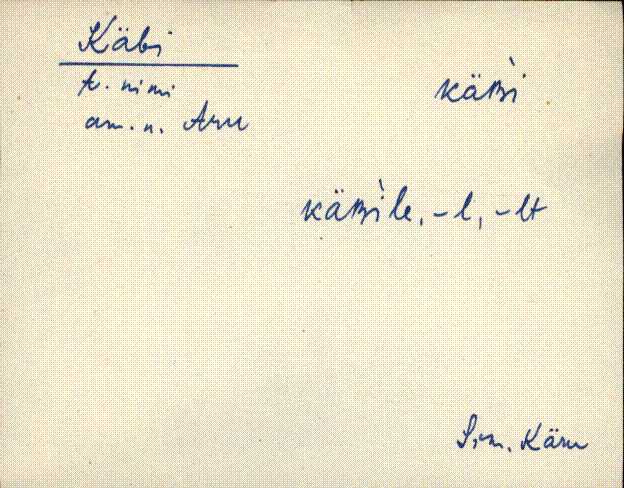 Käbi
t. nimi
am. n. Aru
käʙi
käʙile, -l, -lt
S.-m. Käru